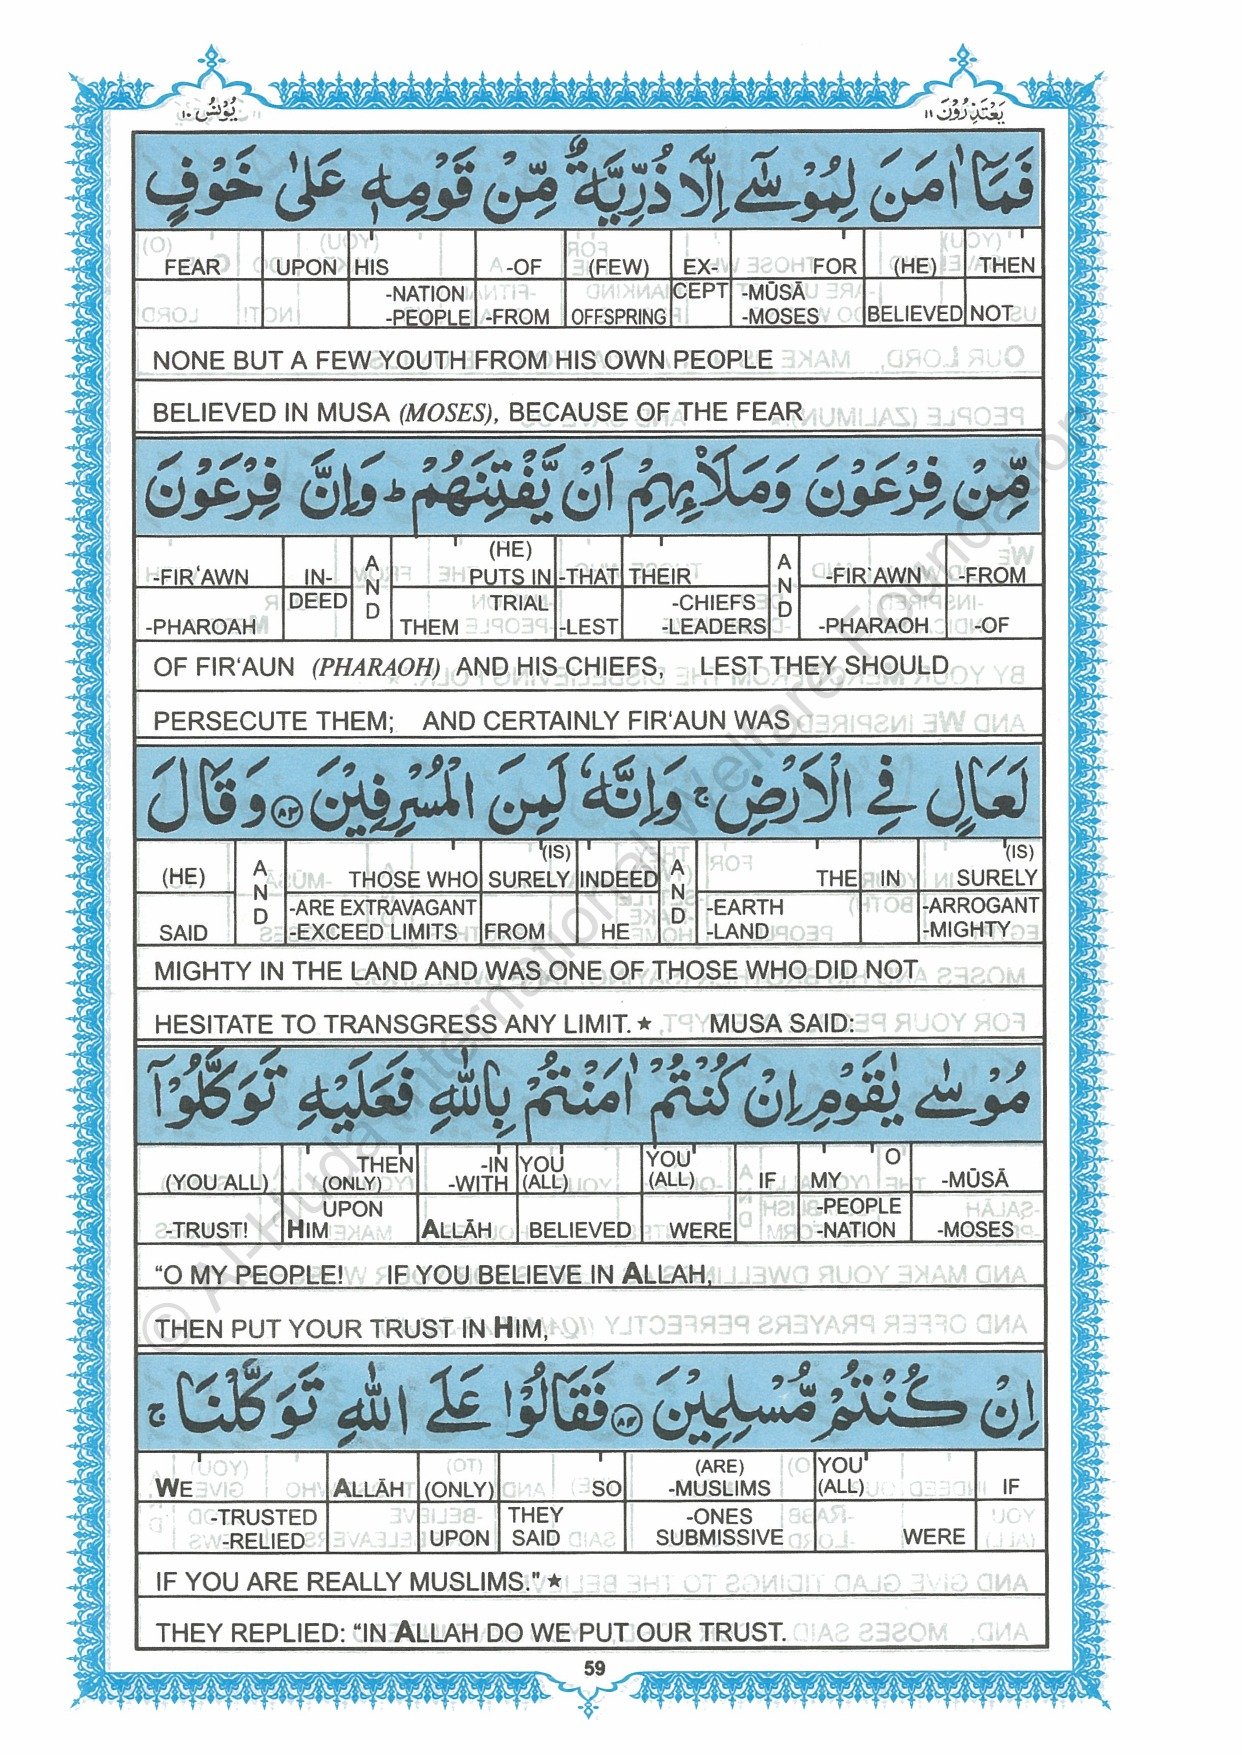 يَعْتَذِرُوْنَ ١١
يُوْنُسُ ١٠
فَمَآ اٰمَنَ لِمُوْسٰٓى اِلَّا ذُرِّيَّةٌ مِّنْ قَوْمِهٖ عَلٰى خَوْفٍ
FEAR UPON HIS -OF (FEW) EX- FOR (HE) THEN
-NATION CEPT -MŪSĀ
-PEOPLE -FROM OFFSPRING -MOSES BELIEVED NOT
NONE BUT A FEW YOUTH FROM HIS OWN PEOPLE
BELIEVED IN MUSA (MOSES), BECAUSE OF THE FEAR
مِّنْ فِرْعَوْنَ وَمَلَا۟ئِهِمْ اَنْ يَّفْتِنَهُمْ ؕ وَاِنَّ فِرْعَوْنَ
(HE)
-FIR‘AWN IN- AND PUTS IN -THAT THEIR AND -FIR‘AWN -FROM
DEED TRIAL -CHIEFS
-PHAROAH THEM -LEST -LEADERS -PHARAOH -OF
OF FIR‘AUN (PHARAOH) AND HIS CHIEFS, LEST THEY SHOULD
PERSECUTE THEM; AND CERTAINLY FIR‘AUN WAS
لَعَالٍ فِى الْاَرْضِ ۚ وَاِنَّهٗ لَمِنَ الْمُسْرِفِيْنَ ﴿٨٣﴾ وَقَالَ
(IS) (IS)
(HE) AND THOSE WHO SURELY INDEED AND THE IN SURELY
-ARE EXTRAVAGANT -EARTH -ARROGANT
SAID -EXCEED LIMITS FROM HE -LAND -MIGHTY
MIGHTY IN THE LAND AND WAS ONE OF THOSE WHO DID NOT
HESITATE TO TRANSGRESS ANY LIMIT.★ MUSA SAID:
مُوْسٰى يٰقَوْمِ اِنْ كُنْتُمْ اٰمَنْتُمْ بِاللّٰهِ فَعَلَيْهِ تَوَكَّلُوْٓا
THEN -IN YOU YOU O
(YOU ALL) (ONLY) -WITH (ALL) (ALL) IF MY -MŪSĀ
UPON -PEOPLE
-TRUST! HIM ALLĀH BELIEVED WERE -NATION -MOSES
“O MY PEOPLE! IF YOU BELIEVE IN ALLAH,
THEN PUT YOUR TRUST IN HIM,
اِنْ كُنْتُمْ مُّسْلِمِيْنَ ﴿٨٤﴾ فَقَالُوْا عَلَى اللّٰهِ تَوَكَّلْنَا ۚ
(ARE) YOU
WE ALLĀH (ONLY) SO -MUSLIMS (ALL) IF
-TRUSTED THEY -ONES
-RELIED UPON SAID SUBMISSIVE WERE
IF YOU ARE REALLY MUSLIMS.”★
THEY REPLIED: “IN ALLAH DO WE PUT OUR TRUST.
59
© Al-Huda International Welfare Foundation